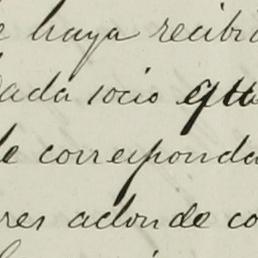 e haya recibi
dada socio que
le corresponda
res adonde co